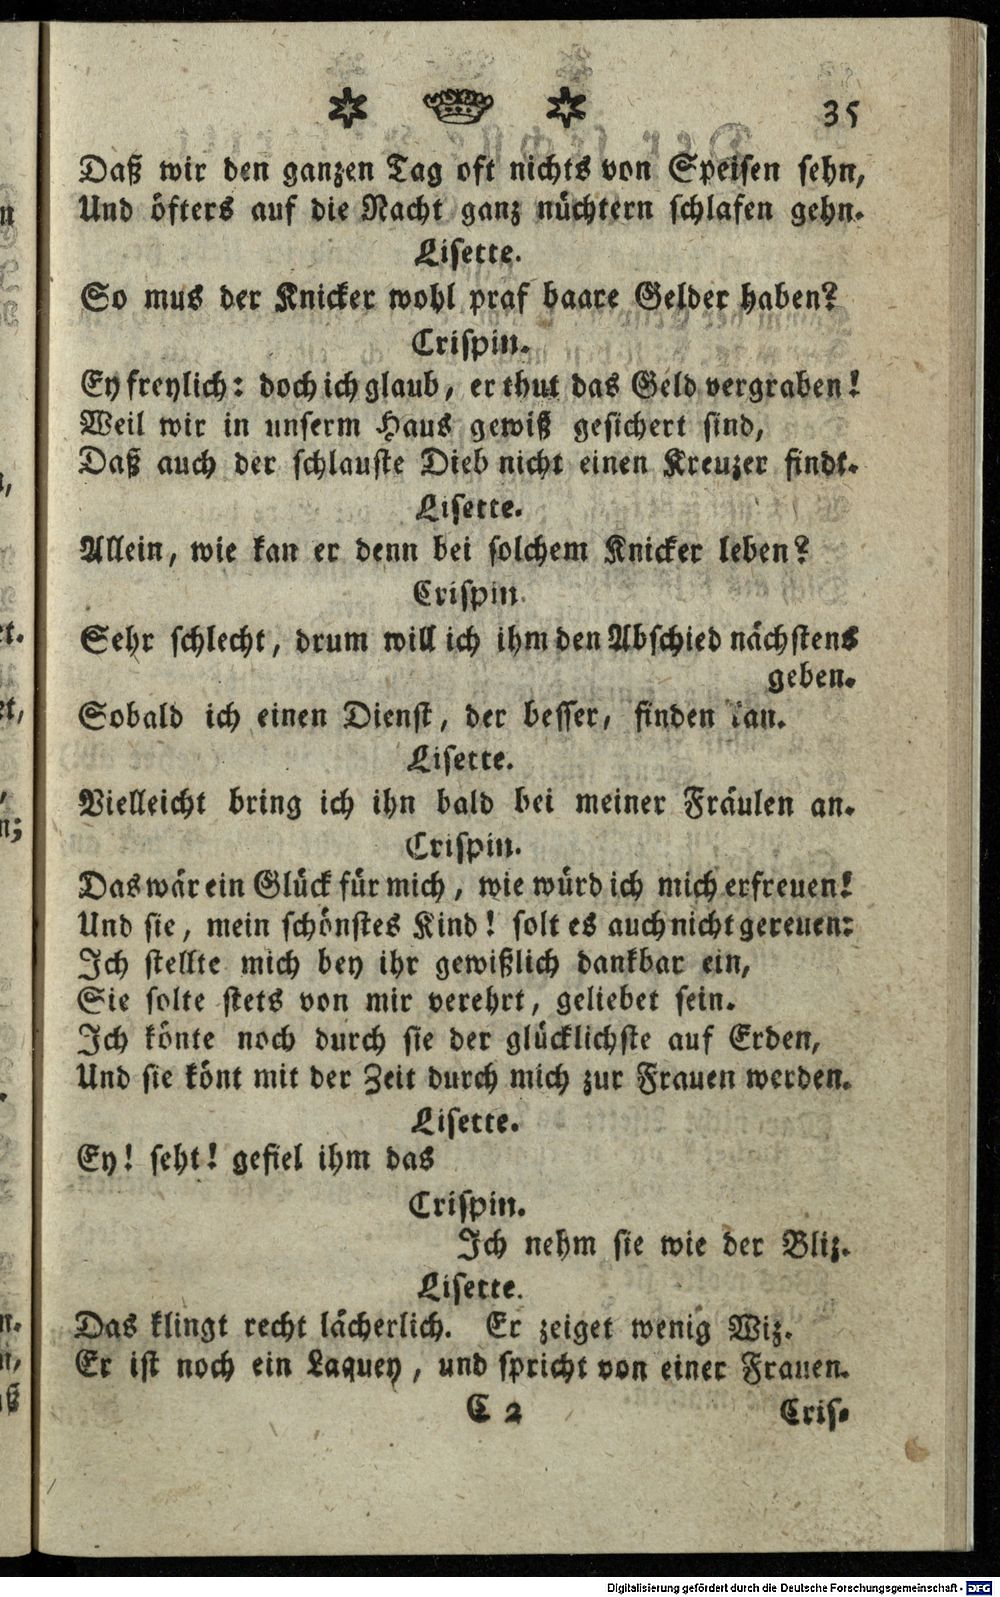 35
Daß wir den ganzen Tag oft nichts von Speisen sehn,
Und öfters auf die Nacht ganz nüchtern schlafen gehn.
Lisette.
So mus der Knicker wohl praf baare Gelder haben?
Crispin.
Ey freylich: doch ich glaub, er thut das Geld vergraben!
Weil wir in unserm Haus gewiß gesichert sind,
Daß auch der schlauste Dieb nicht einen Kreuzer findt.
Lisette.
Allein, wie kan er denn bei solchem Knicker leben?
Crispin.
Sehr schlecht, drum will ich ihm den Abschied nächstens
geben.
Sobald ich einen Dienst, der besser, finden kan.
Lisette.
Vielleicht bring ich ihn bald bei meiner Fräulen an.
Crispin.
Das wär ein Glück für mich, wie würd ich mich erfreuen!
Und sie, mein schönstes Kind! solt es auch nicht gereuen:
Ich stellte mich bey ihr gewißlich dankbar ein,
Sie solte stets von mir verehrt, geliebet sein.
Ich könte noch durch sie der glücklichste auf Erden,
Und sie könt mit der Zeit durch mich zur Frauen werden.
Lisette.
Ey! seht! gefiel ihm das
Crispin.
Ich nehm sie wie der Bliz.
Lisette.
Das klingt recht lächerlich. Er zeiget wenig Wiz.
Er ist noch ein Laquey, und spricht von einer Frauen.
C 2 Cris-
Digitalisierung gefördert durch die Deutsche Forschungsgemeinschaft - DFG